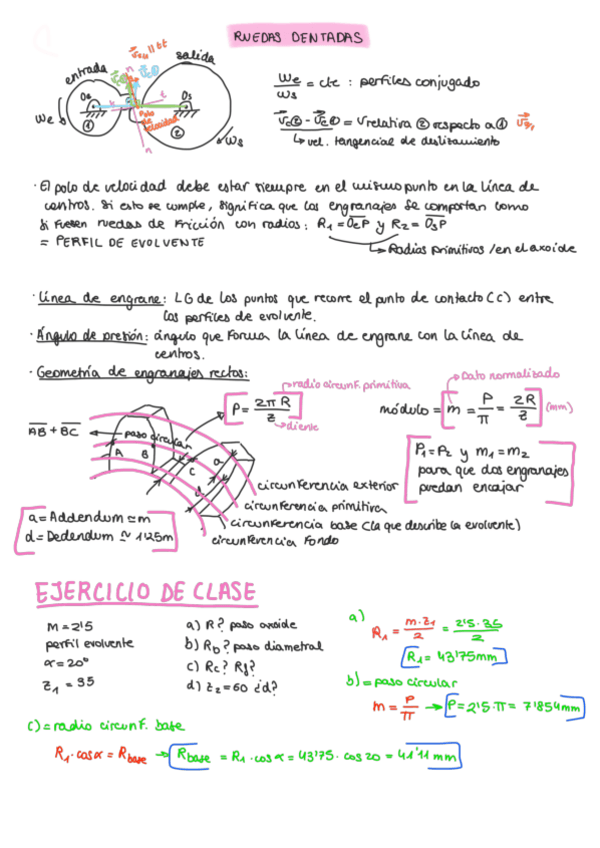 RUEDAS DENTADAS
entrada
salida
Oe
Os
We
Ws
Polo de velocidad
We/Ws = cte : perfiles conjugado
Vc② - Vc① = Vrelativa ② respecto a ① V2/1
↳ vel. tangencial de deslizamiento
· El polo de velocidad debe estar siempre en el mismo punto en la línea de
centros. Si esto se cumple, significa que los engranajes se comportan como
si fuesen ruedas de fricción con radios: R1 = OeP y R2 = OsP
= PERFIL DE EVOLVENTE
Radios primitivos / en el axoide
· Línea de engrane: LG de los puntos que recorre el punto de contacto (c) entre
los perfiles de evolvente.
· Ángulo de presión: ángulo que forma la línea de engrane con la línea de
centros.
· Geometría de engranajes rectos:
radio circunf. primitiva
P = 2π R / Z
diente
Dato normalizado
módulo = m = P/π = 2R/Z (mm)
AB + BC
paso circular
A B C a d
P1 = P2 y m1 = m2
para que dos engranajes
puedan encajar
circunferencia exterior
circunferencia primitiva
circunferencia base (la que describe la evolvente)
circunferencia fondo
a = Addendum ≃ m
d = Dedendum ≃ 1'25m
EJERCICIO DE CLASE
m = 2'5
perfil evolvente
α = 20º
Z1 = 35
a) R? paso axoide
b) Rb? paso diametral
c) Rc? Rf?
d) Z2 = 60 ¿d?
a)
R1 = m·Z1/2 = 2'5·35/2
R1 = 43'75mm
b) = paso circular
m = P/π → P = 2'5·π = 7'854mm
c) = radio circunf. base
R1·cosα = Rbase → Rbase = R1·cosα = 43'75·cos20 = 41'11 mm